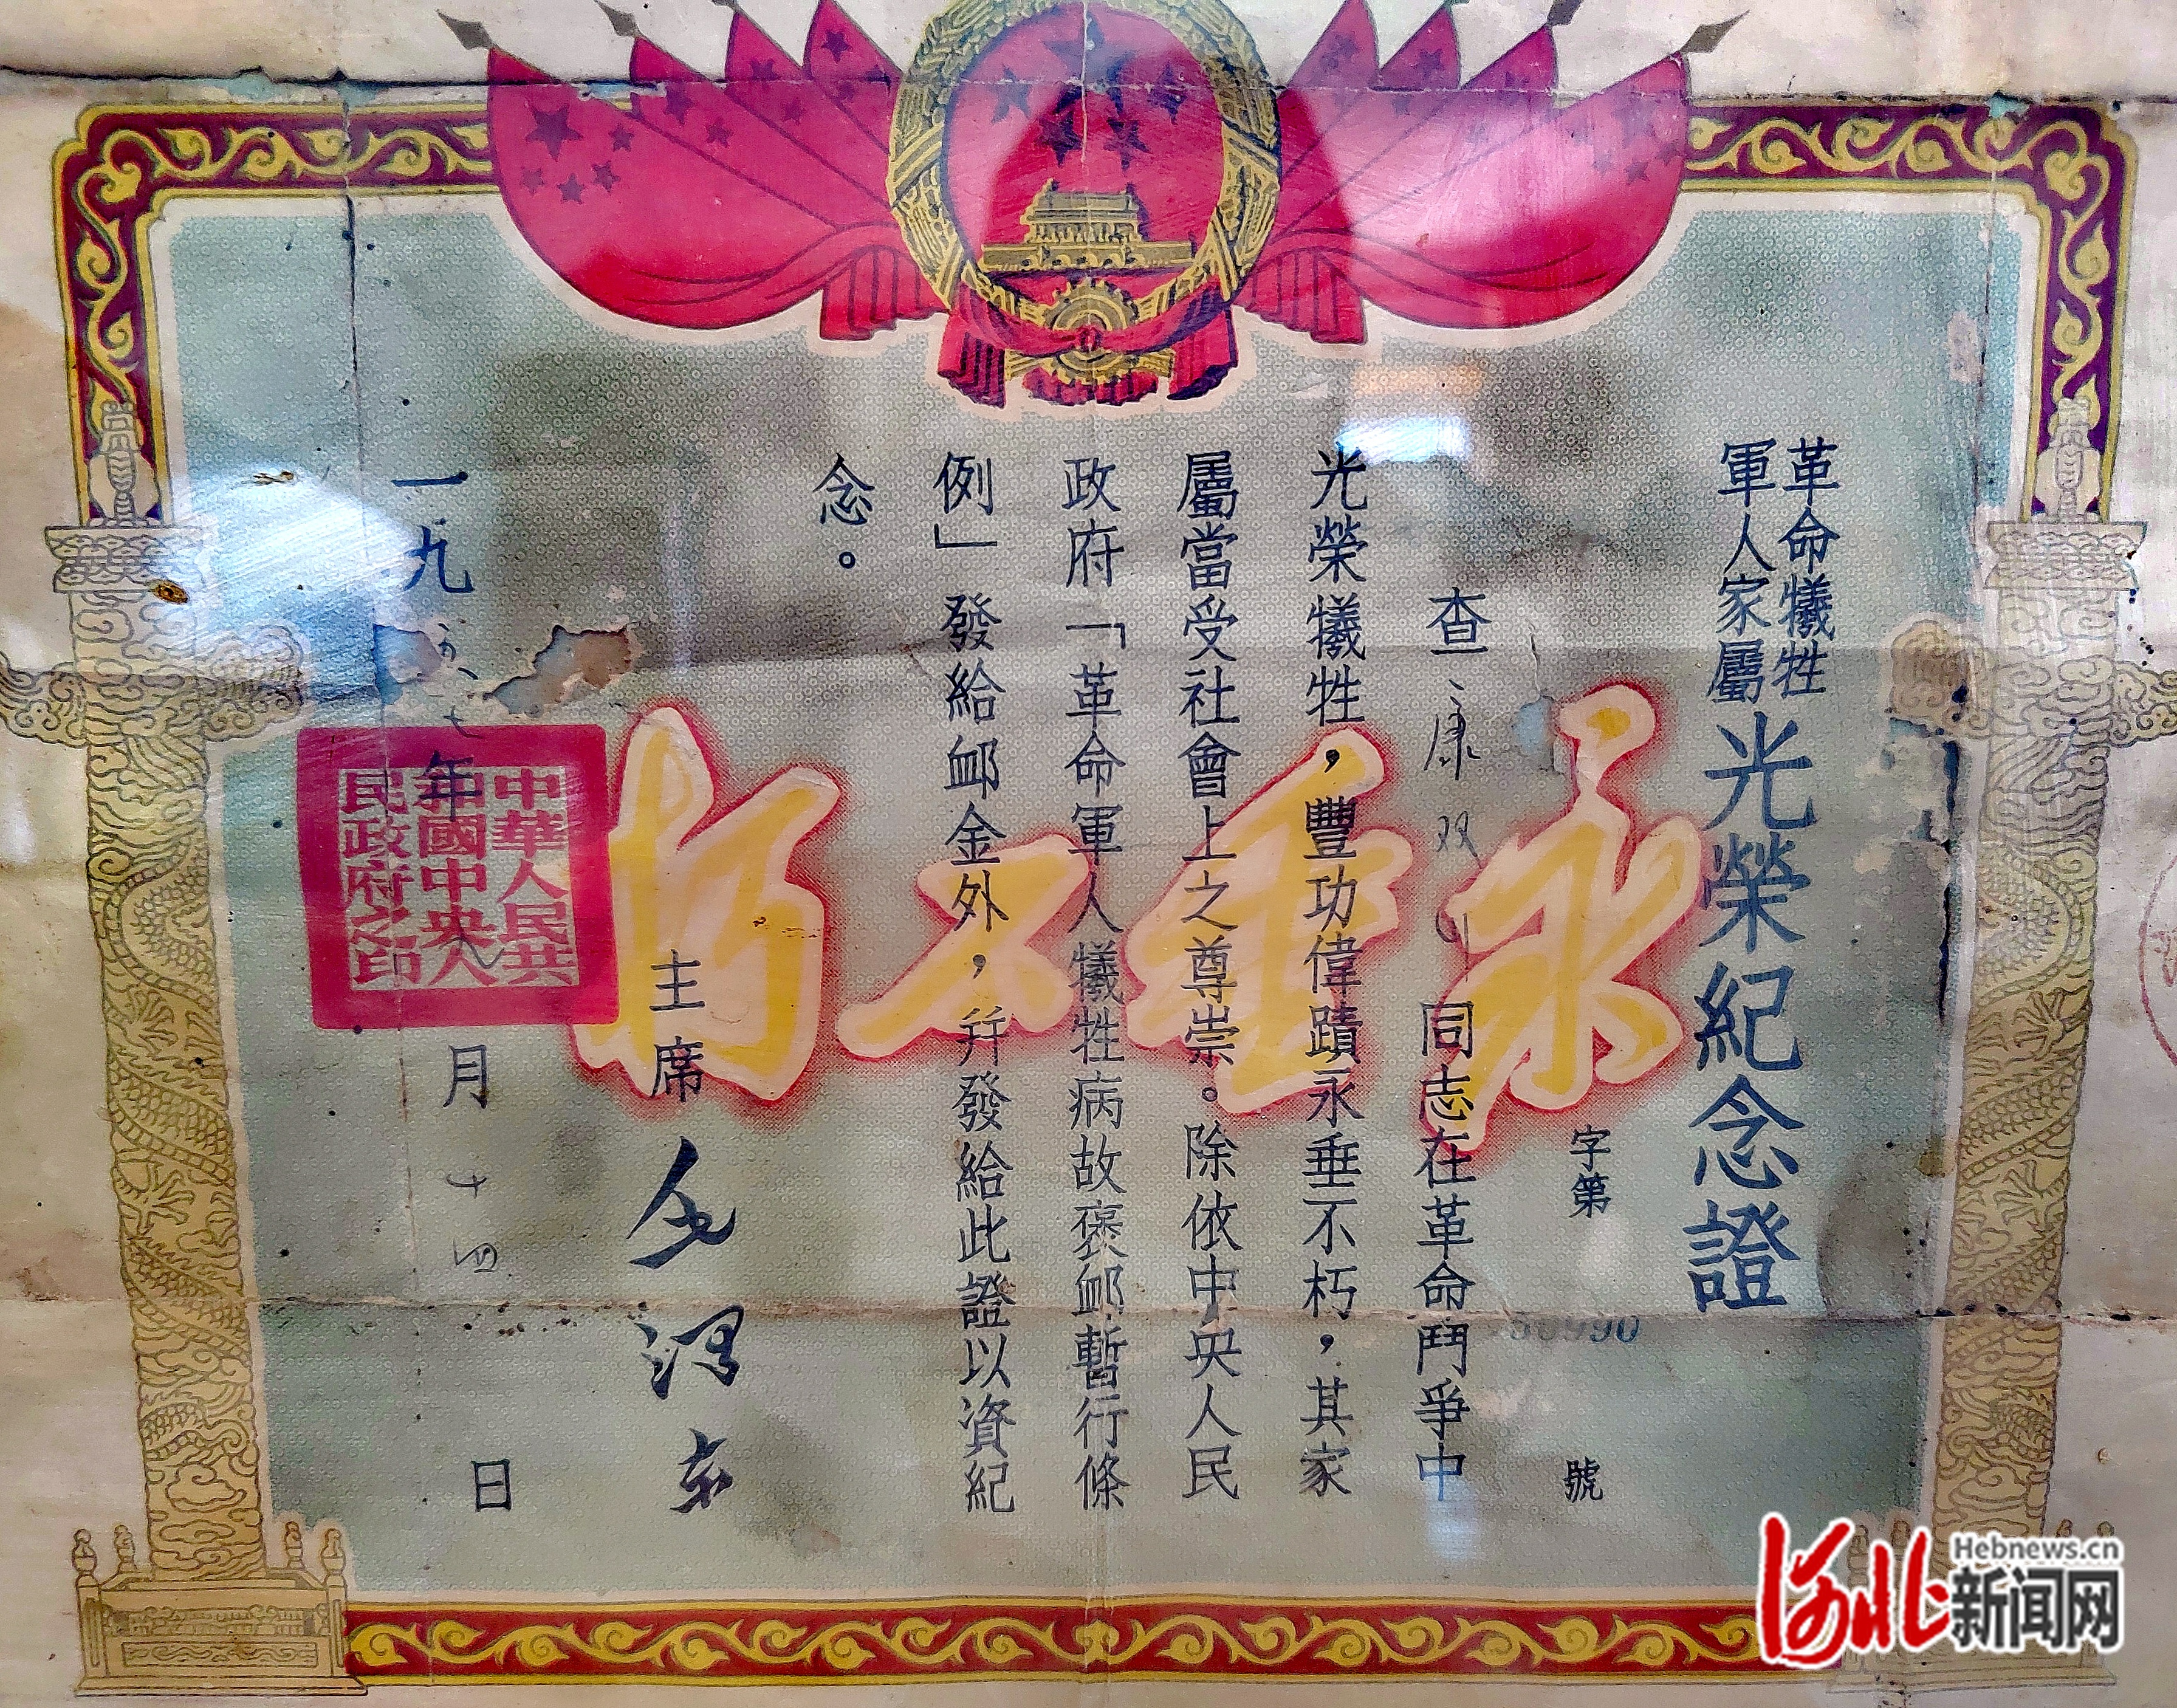 革命犧牲
軍人家屬
光榮紀念證
字第
50990
號
查 康双 同志在革命鬥爭中
光榮犧牲，豐功偉蹟永垂不朽，其家
屬當受社會上之尊崇。除依中央人民
政府「革命軍人犧牲病故褒卹暫行條
例」發給卹金外，幷發給此證以資紀
念。
永垂不朽
主席 毛澤東
一九五 年 月十四日
中華人民共
和國中央人
民政府之印
河北
Hebnews.cn
新闻网